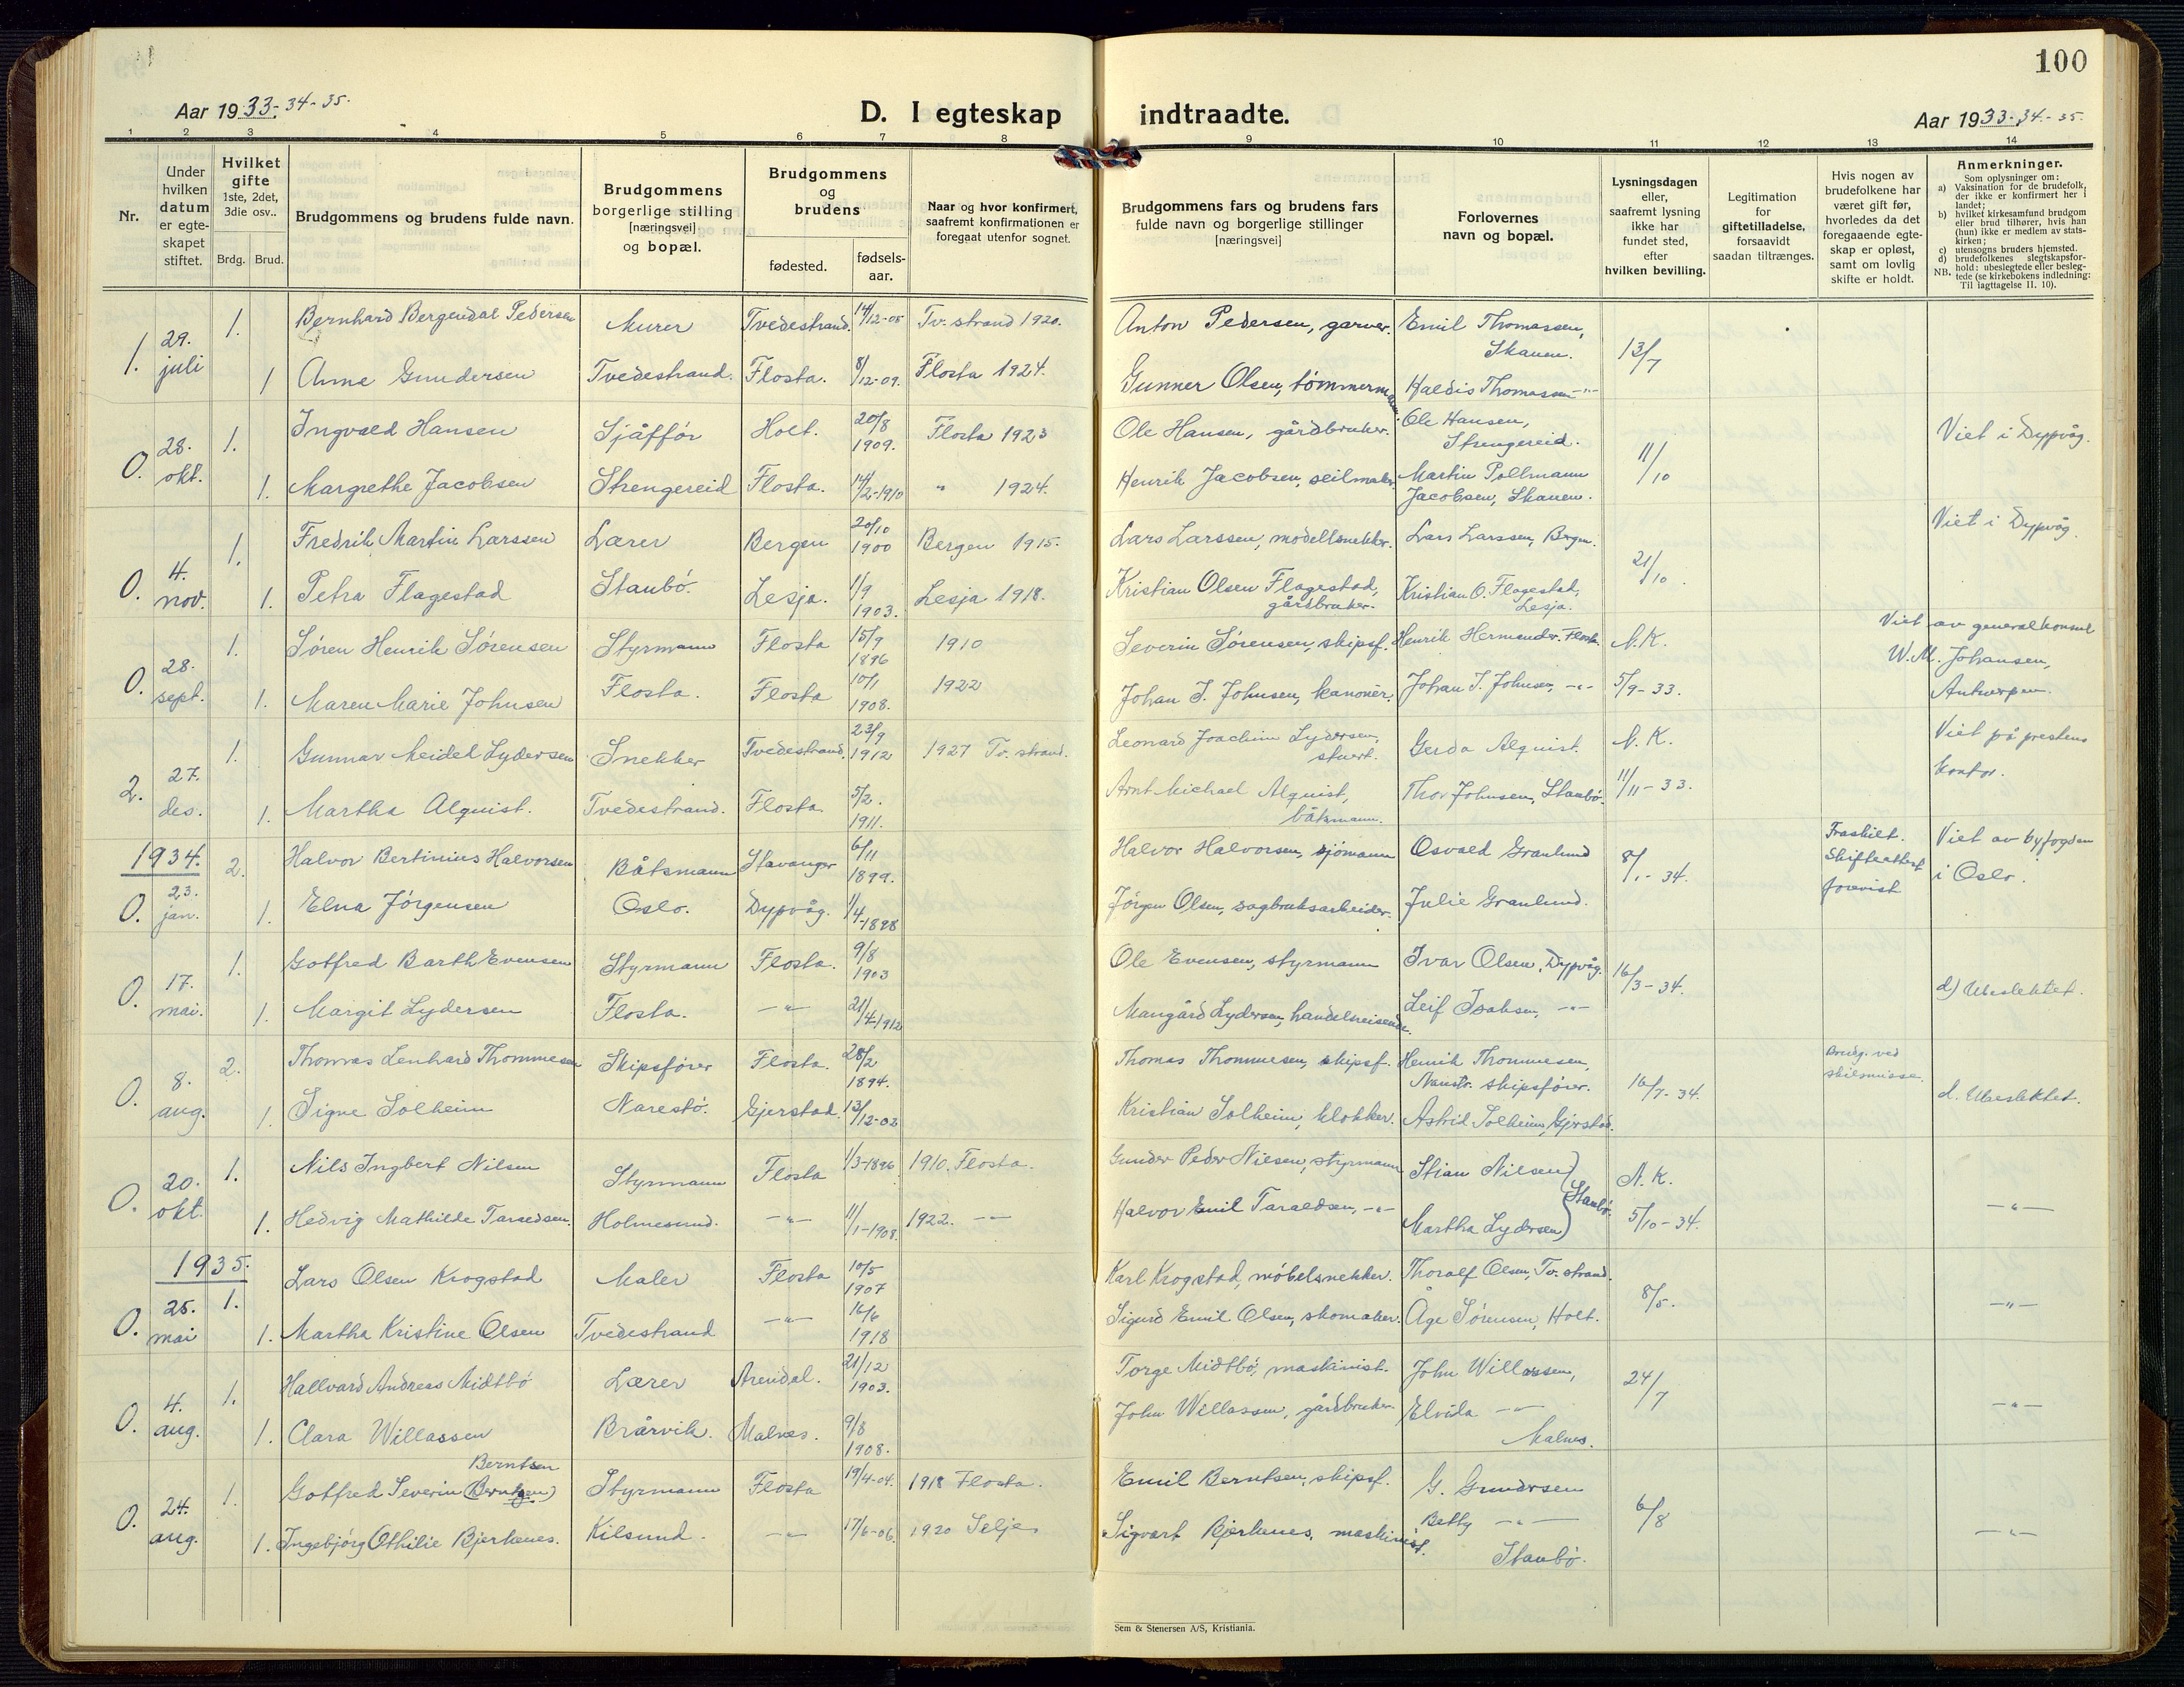 100
Aar 1933-34-35.
D. I egteskap indtraadte.
Aar 1933-34-35.
1 2 3 4 5 6 7 8 9 10 11 12 13 14
Nr.
Under hvilken datum er egteskapet stiftet.
Hvilket gifte 1ste, 2det, 3die osv..
Brdg. Brud.
Brudgommens og brudens fulde navn.
Brudgommens borgerlige stilling [næringsvei] og bopæl.
Brudgommens og brudens
fødested. fødselsaar.
Naar og hvor konfirmert, saafremt konfirmationen er foregaat utenfor sognet.
Brudgommens fars og brudens fars fulde navn og borgerlige stillinger [næringsvei]
Forlovernes navn og bopæl.
Lysningsdagen eller, saafremt lysning ikke har fundet sted, efter hvilken bevilling.
Legitimation for giftetilladelse, forsaavidt saadan tiltrænges.
Hvis nogen av brudefolkene har været gift før, hvorledes da det foregaaende egteskap er opløst, samt om lovlig skifte er holdt.
Anmerkninger.
Som oplysninger om:
a) Vaksination for de brudefolk, der ikke er konfirmert her i landet;
b) hvilket kirkesamfund brudgom eller brud tilhører, hvis han (hun) ikke er medlem av statskirken;
c) utensogns bruders hjemsted.
d) brudefolkenes slegtskapsforhold: ubeslegtede eller beslegtede (se kirkebokens indledning:
NB. Til iagttagelse II. 10).
1. 29. juli 1. Bernhard Bergendal Pedersen Murer Tvedestrand. 14/12-05 Tv. strand 1920. Anton Pedersen, garver. Emil Thomassen, Skauen. 13/7
1 Anne Gundersen Tvedestrand. Flosta. 8/12-09. Flosta 1924. Gunner Olsen, tømmermann. Haldis Thomassen -"-
0. 28. okt. 1. Ingvald Hansen Sjåffør Holt. 20/8 1909. Flosta 1923 Ole Hansen, gårdbruker. Ole Hansen, Strengereid. 11/10 Viet i Dypvåg.
1. Margrethe Jacobsen Strengereid Flosta. 14/2-1910 " 1924. Henrik Jacobsen, seilmaker. Martin Pollmann Jacobsen, Skauen.
0. 4. nov. 1. Fredrik Martin Larssen Lærer Bergen 20/10 1900 Bergen 1915. Lars Larssen, modellsnekker. Lars Larssen, Bergen. 21/10. Viet i Dypvåg.
1. Petra Flagestad Staubø. Lesja. 1/9 1903. Lesja 1918. Kristian Olsen Flagestad, gårdbruker. Kristian O. Flagestad, Lesja.
0. 28. sept. 1. Søren Henrik Sørensen Styrmann Flosta 15/9 1896 1910 Severin Sørensen, skipsf. Henrik Hermansen Flosta. N.K. Viet av generalkonsul W.M. Johansen, Antwerpen.
1. Maren Marie Johnsen Flosta. Flosta 10/1 1908. 1922 Johan J. Johnsen, kanonér. Johan J. Johnsen, -"- 5/9-33.
2. 27. des. 1. Gunnar Meidel Lydersen Snekker Tvedestrand. 23/9 1912 1927 Tv. strand. Leonard Joachim Lydersen, stuert. Gerda Alquist. N.K. Viet på prestens kontor.
1. Martha Alquist. Tvedestrand. Flosta. 5/2. 1911. Arnt Michael Alquist, båtsmann. Thor Johnsen, Staubø. 11/11-33.
1934.
0. 23. jan. 2. Halvor Bertinius Halvorsen Båtsmann Stavanger 6/11 1899. Halvor Halvorsen, sjømann Osvald Granlund 8/1-34. Fraskilt. Skifteattest forevist Viet av byfogden i Oslo.
1. Elna Jørgensen Oslo. Dypvåg. 1/4-1898 Jørgen Olsen, sagbruksarbeider. Julie Granlund.
0. 17. mai. 1. Gotfred Barth Evensen Styrmann Flosta. 9/8 1903 Ole Evensen, styrmann Ivar Olsen, Dypvåg. 16/3-34. d) Ubeslektet.
1. Margit Lydersen Flosta. -"- 21/4-1912 Mangård Lydersen, handelsreisende. Leif Isaksen, -"-
0. 8. aug. 2. Thomas Lenhard Thommesen Skipsfører Flosta. 28/2 1894. Thomas Thommesen, skipsf. Henrik Thommesen, Narestø. skipsfører. 16/7-34. Brudg. ved skilsmisse. d. Ubeslektet.
1. Signe Solheim Narestø. Gjerstad. 13/12-02 Kristian Solheim, klokker. Astrid Solheim, Gjerstad.
0. 20. okt. 1. Nils Ingbert Nilsen Styrmann Flosta 1/3-1896 1910. Flosta. Gunder Peder Nilsen, styrmann Stian Nilsen } Staubø. N.K. -"-
1. Hedvig Mathilde Taraldsen. Holmesund. -"- 11/1-1908. 1922. -"- Halvor Emil Taraldsen, -"- Martha Lydersen 5/10-34.
1935.
0. 25. mai 1. Lars Olsen Krogstad Maler Flosta 10/5 1907 Karl Krogstad, møbelsnekker. Thoralf Olsen, Tv. strand. 8/5. -"-
1. Martha Kristine Olsen Tvedestrand -"- 16/6 1918 Sigurd Emil Olsen, skomaker. Åge Sørensen, Holt.
0. 4. aug. 1. Hallvard Andreas Midtbø Lærer Arendal. 21/12 1903. Torge Midtbø, maskinist. John Willassen, 24/7 -"-
1. Clara Willassen Brårvik. Malnes. 9/8 1908. John Willassen, gårdbruker Elvida -"- Malnes.
0. 24. aug. 1. Gotfred Severin (Berntzen) Berntsen Styrmann Flosta 19/4-04. 1918 Flosta. Emil Berntsen, skipsf. G. Gundersen 6/8 -"-
1. Ingebjørg Othilie Bjerkenes. Kilsund. -"- 17/6-06. 1920 Selje. Sigvart Bjerkenes, maskinist. Betty -"- Staubø.
Sem & Stenersen A/S, Kristiania.